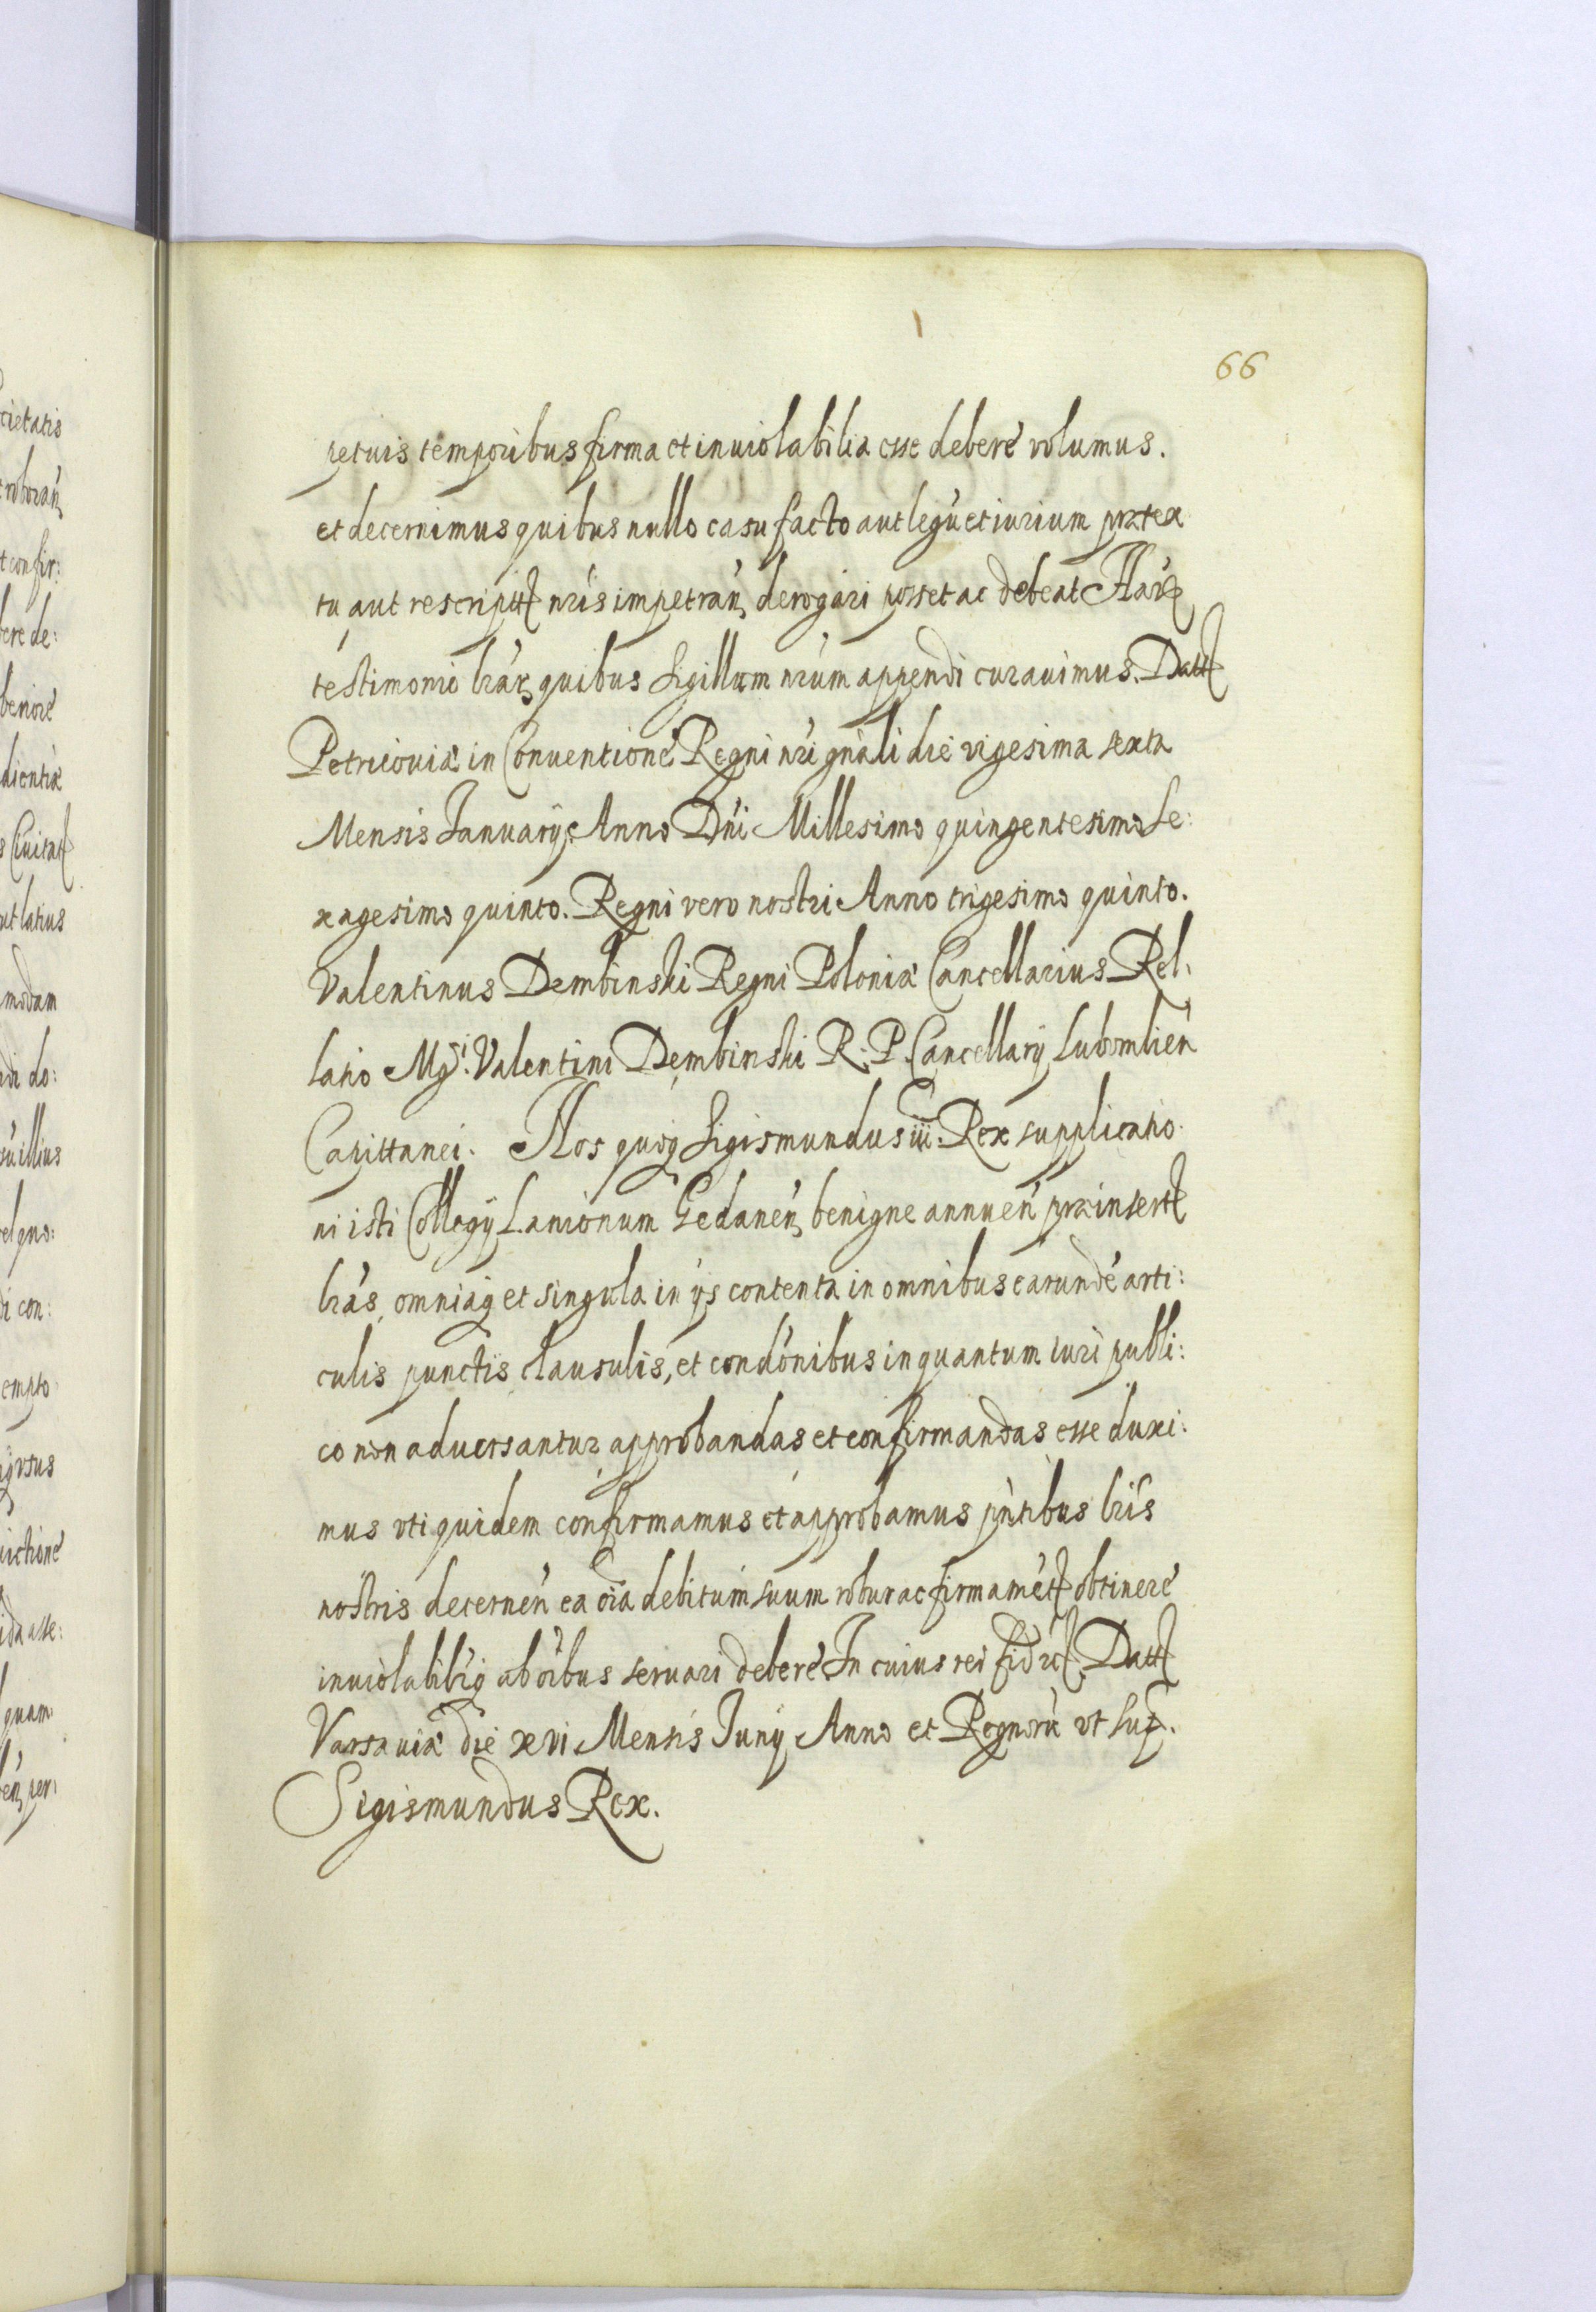 66
petuis temporibus firma et inuiolabilia esse debere volumus.
et decernimus quibus nullo casu facto aut legũ et iurium prætex
tu aut rescriptt nr̃is impetrañ derogari posset ac debeat Har̃
testimonio lr̃ar̃ quibus Sigillum nr̃um appendi curauimus. Datt
Petricouiæ in Conuentione Regni nr̃i gñali die vigesima sexta
Mensis Januarÿ Anno Dñi Millesimo quingentesimo Se:
xagesimo quinto. Regni vero nostri Anno trigesimo quinto.
Valentinus Dembinski Regni Poloniæ Cancellarius Rel.
latio Mgci. Valentini Dembinski R. P. Cancellarÿ Lubomlieñ
Capittanei. Nos quoq Sigismundus iii. Rex supplicatio
ni isti Collegÿ Lanionum Gedaneñ benigne annueñ præinsertt
lr̃as, omniaq et singula in ÿs contenta in omnibus earundẽ arti:
culis punctis clausulis, et condõnibus inquantum iuri publi:
co non aduersantur approbandas et confirmandas esse duxi:
mus vti quidem confirmamus et approbamus pñtibus lr̃is
nostris decerneñ ea oĩa debitum suum robur ac firmamẽtt obtinere
inuiolabilr̃q ab oĩbus seruari debere In cuius rei fid Datt
Varsauiæ die xvi Mensis Junÿ Anno et Regnorũ vt Sup.
Sigismundus Rex.